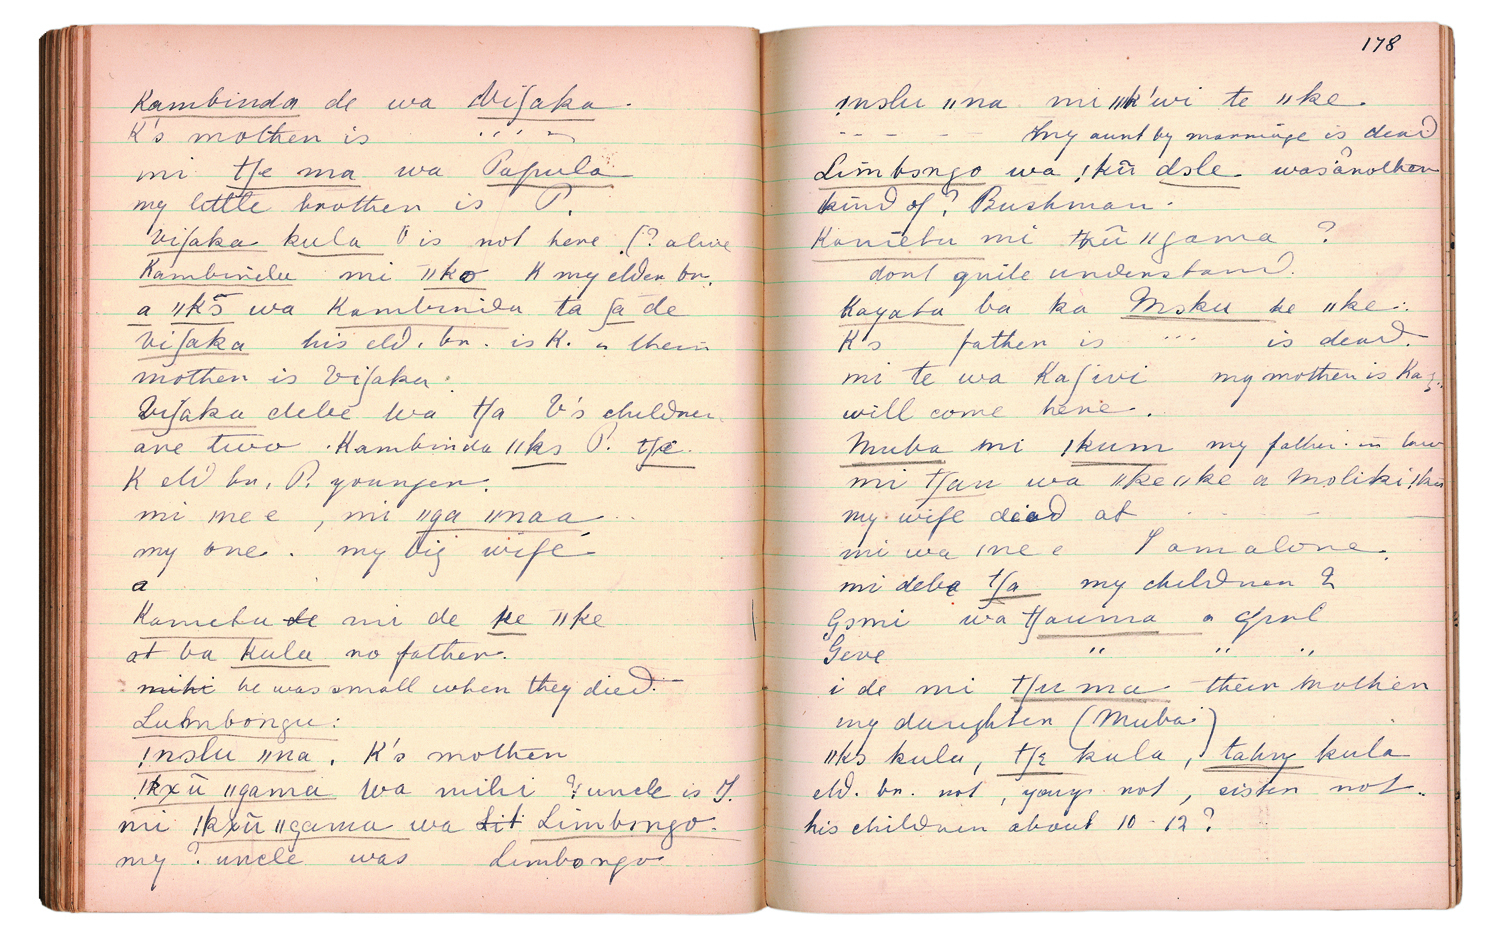 Kambinda de wa Viʃaka.
K's mother is " " "
mi tʃe ma wa Papula
my little brother is P.
Viʃaka kula V is not here (? alive
Kambinda mi ǁko K my elder br.
a ǁkō wa Kambinda ta ʃa de
Viʃaka his eld. br. is K. a their
mother is Viʃaka.
Viʃaka debe wa tʃa V's children
are two. Kambinda ǁko P. tʃe.
K eld br. P. younger.
mi ǀnee, mi ǁga ǁnaa
my one. my big wife
a
Kametu de mi de ke ǁke
at ba kula no father.
mihi he was small when they died.
Limbongu:
ǃnɔlu ǁna. K's mother
ǃkxū ǁgama wa mihi ? uncle is
mi ǃkxū ǁgama wa Lit Limbongo.
my ? uncle was Limbongo
178
ǃnɔlu ǁna mi ǁk'wi te ǁke.
- - - - my aunt by marriage is dead
Limbongo wa ǃkū dole. was another
kind of? Bushman.
Kametu mi ǁgama ?
dont quite understand.
Kayata ba ka Moku ke ǁke.
K's father is " " " is dead.
mi te wa Kaʃivi my mother is Kaʃ.
will come here.
Muba mi ǀkum my father in law
mi tʃau wa ǁkeǁke a Moliki
my wife died at - - -
mi wa ǀnee I am alone.
mi deba tʃa my children 2
Gomi wa tʃauma a girl
Geve " " "
i de mi tʃuma their mother
my daughter (Muba)
ǁko kula, tʃe kula, kula
eld. br. not, young not, sister not.
his children about 10-12?